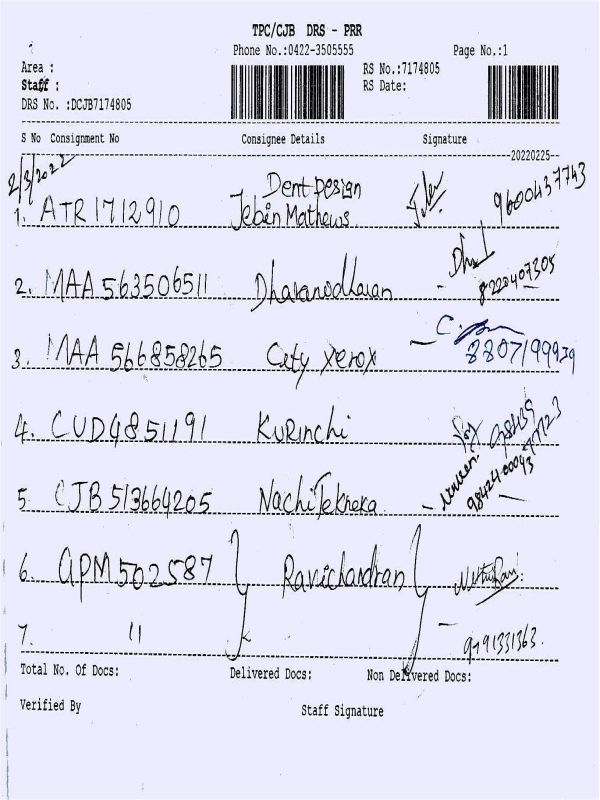 TPC/CJB DRS - PRR
Phone No.:0422-3505555 Page No.:1
Area : RS No.:7174805
Staff : RS Date:
DRS No. :DCJB7174805
S No Consignment No Consignee Details Signature
20220225
2/3/2022
Dent Design
1. ATR1712910 Jebin Mathews 9600437743
2. MAA 563506511 Dharanidharan 8220407305
3. MAA 566858265 City xerox 8807199939
4. CUD4851191 Kurinchi
5. CJB 513664205 Nachi Tekneka 9842400043
6. GPM502587 Ravichandran
7. 11 9791331363
Total No. Of Docs: Delivered Docs: Non Delivered Docs:
Verified By Staff Signature